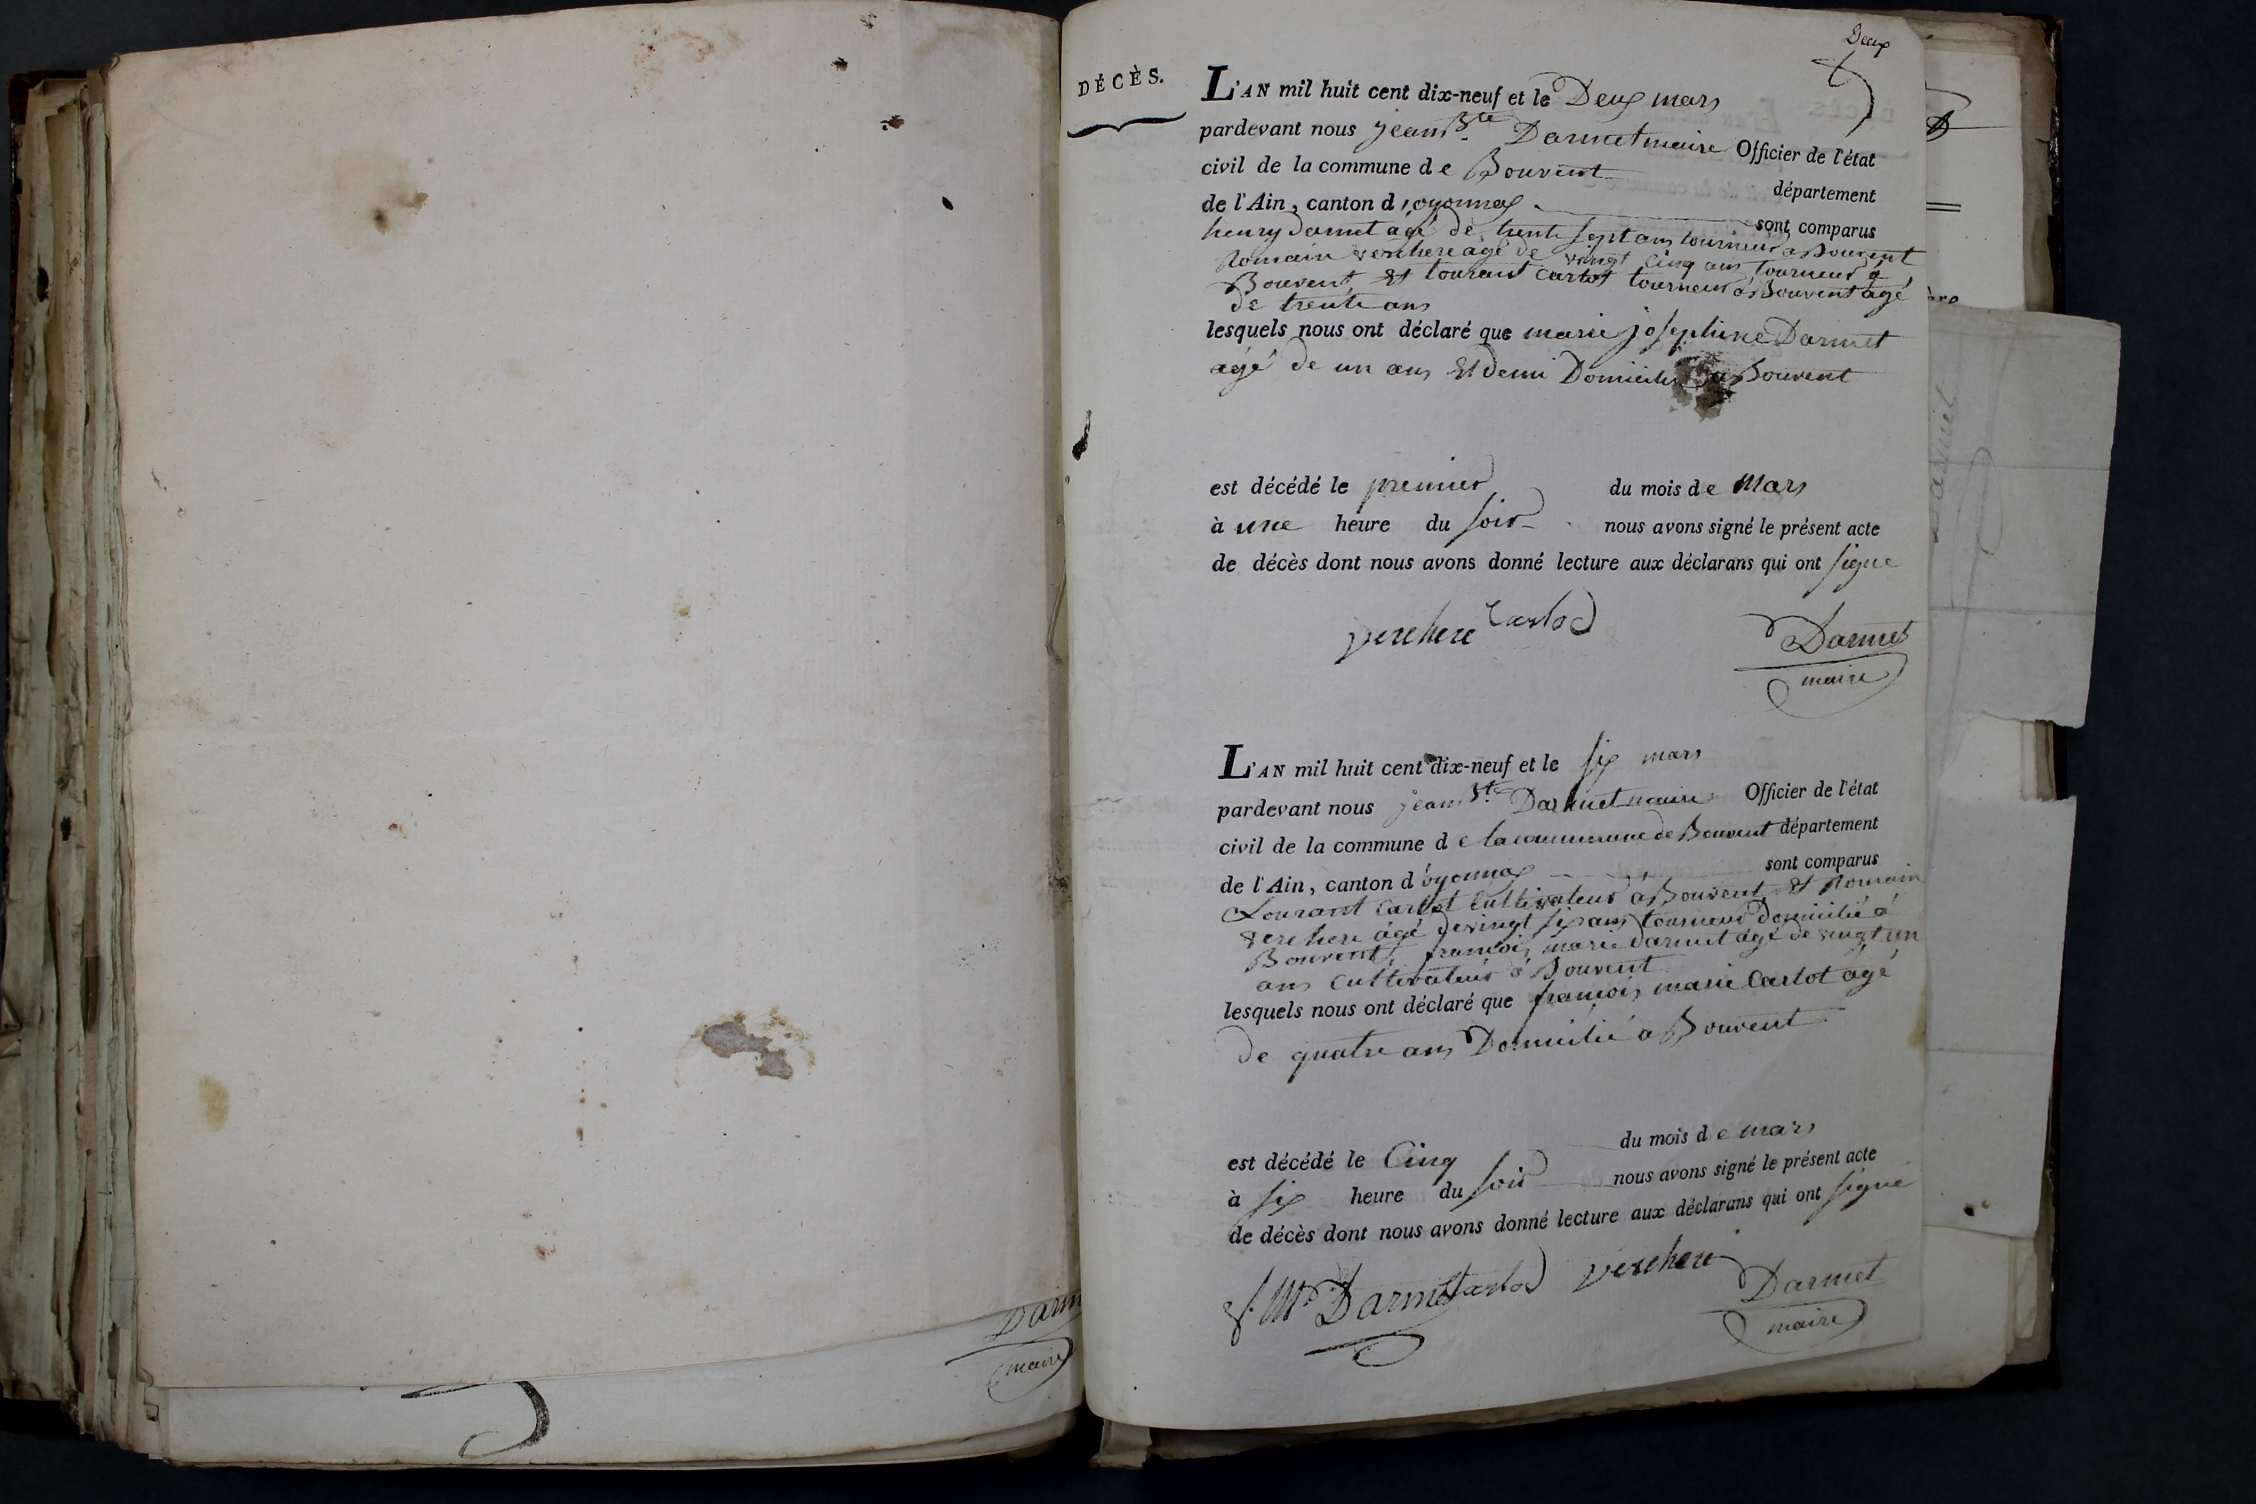 Darm
maire
Deux
DÉCÈS.
L'AN mil huit cent dix-neuf et le Deux mars
pardevant nous jean Bte Darmet maire Officier de l'état
civil de la commune de Bouvent département
de l'Ain, canton d'oyonnax sont comparus
henry Darmet agé de trente sept ans tourneur a Bouvent
Romain verchere agé de vingt cinq ans tourneur a
Bouvent, et Lourant Carlot tourneur a Bouvent agé
de trente ans
lesquels nous ont déclaré que marie josephine Darmet
agé de un ans Et demi Domicilié a Bouvent
est décédé le premier du mois de Mars
à une heure du soir nous avons signé le présent acte
de décès dont nous avons donné lecture aux déclarans qui ont signe
verchere Carlod
Darmet
maire
L'AN mil huit cent dix-neuf et le six mars
pardevant nous jean Bte Darmet maire Officier de l'état
civil de la commune de la commune de Bouvent département
de l'Ain, canton d'oyonnax sont comparus
Lourant Carlot Cultivateur a Bouvent et Romain
verchere agé de vingt six ans tourneur Domicilié á
Bouvent, francois marie Darmet agé de vingt un
ans Cultivateur a Bouvent
lesquels nous ont déclaré que francois marie Carlot agé
de quatre ans Domicilié a Bouvent
est décédé le Cinq du mois de mars
à six heure du soir nous avons signé le présent acte
de décès dont nous avons donné lecture aux déclarans qui ont signé
f. M. Darmet Carlod verchere
Darmet
maire